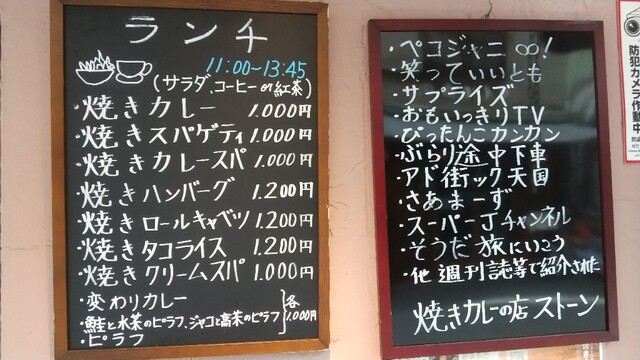 ランチ
11:00〜13:45
(サラダ、コーヒー or 紅茶)
・焼きカレー 1.000円
・焼きスパゲティ 1.000円
・焼きカレースパ 1.000円
・焼きハンバーグ 1.200円
・焼きロールキャベツ 1.200円
・焼きタコライス 1.200円
・焼きクリームスパ 1.000円
・変わりカレー
・鮭と水菜のピラフ、ジャコと高菜のピラフ
・ピラフ
各1.000円
・ペコジャニ∞!
・笑っていいとも
・サプライズ
・おもいっきりTV
・ぴったんこカンカン
・ぶらり途中下車
・アド街ック天国
・さあまーず
・スーパーJチャンネル
・そうだ旅にいこう
・他週刊誌等で紹介された
焼きカレーの店ストーン
防犯カメラ作動中